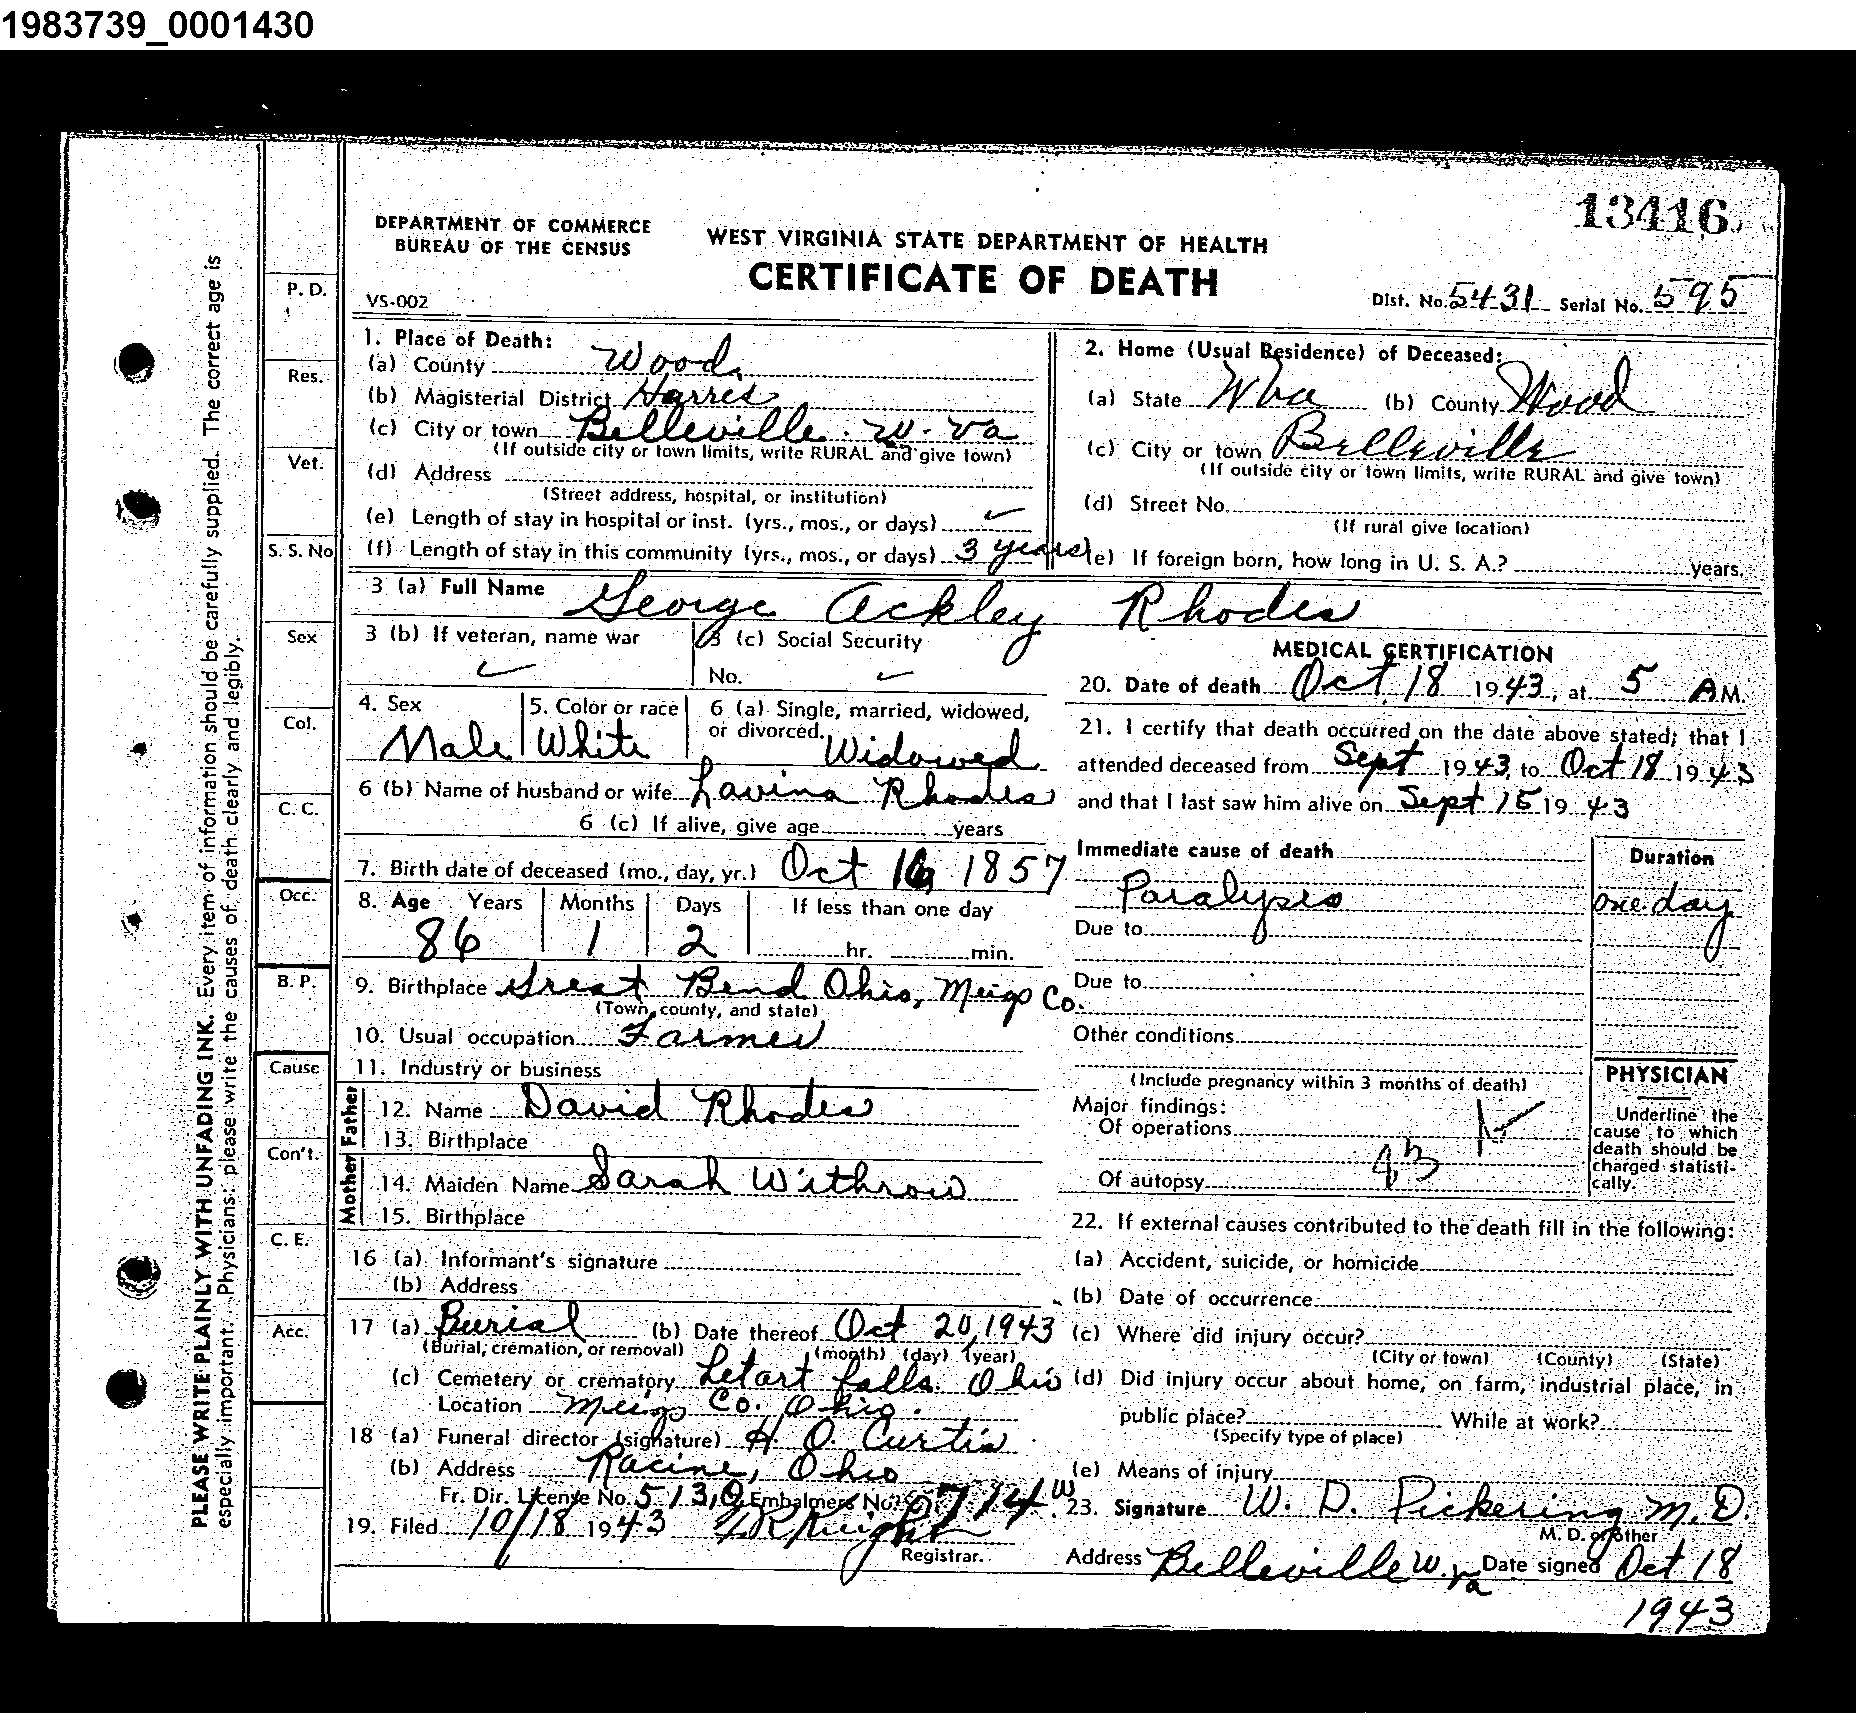 1983739_0001430
13416
DEPARTMENT OF COMMERCE
BUREAU OF THE CENSUS
WEST VIRGINIA STATE DEPARTMENT OF HEALTH
CERTIFICATE OF DEATH
VS-002
Dist. No. 5431 Serial No. 595
PLEASE WRITE PLAINLY WITH UNFADING INK. Every item of information should be carefully supplied. The correct age is
especially important. Physicians: please write the causes of death clearly and legibly.
P. D.
Res.
Vet.
S. S. No
Sex
Col.
C. C.
Occ.
B. P.
Cause
Con't.
C. E.
Acc.
1. Place of Death:
(a) County Wood
(b) Magisterial District Harris
(c) City or town Belleville. W. Va
(If outside city or town limits, write RURAL and give town)
(d) Address
(Street address, hospital, or institution)
(e) Length of stay in hospital or inst. (yrs., mos., or days)
(f) Length of stay in this community (yrs., mos., or days) 3 years
2. Home (Usual Residence) of Deceased:
(a) State W Va (b) County Wood
(c) City or town Belleville
(If outside city or town limits, write RURAL and give town)
(d) Street No.
(If rural give location)
(e) If foreign born, how long in U. S. A.? years.
3 (a) Full Name George Ackley Rhodes
3 (b) If veteran, name war
3 (c) Social Security
No.
4. Sex
Male
5. Color or race
White
6 (a) Single, married, widowed,
or divorced. Widowed
6 (b) Name of husband or wife Lavina Rhodes
6 (c) If alive, give age years
7. Birth date of deceased (mo., day, yr.) Oct 16 1857
8. Age Years Months Days If less than one day
86 1 2 hr. min.
9. Birthplace Great Bend Ohio, Meigs Co.
(Town, county, and state)
10. Usual occupation Farmer
11. Industry or business
Father
12. Name David Rhodes
13. Birthplace
Mother
14. Maiden Name Sarah Withrow
15. Birthplace
16 (a) Informant's signature
(b) Address
17 (a) Burial (b) Date thereof Oct 20, 1943
(Burial, cremation, or removal) (month) (day) (year)
(c) Cemetery or crematory Letart falls. Ohio
Location Meigs Co. Ohio.
18 (a) Funeral director (signature) H. O. Curtis
(b) Address Racine, Ohio
Fr. Dir. License No. Embalmers No.
19. Filed 10/18 1943 Knight
Registrar.
MEDICAL CERTIFICATION
20. Date of death Oct. 18 1943, at 5 A M.
21. I certify that death occurred on the date above stated; that I
attended deceased from Sept 1943, to Oct 18 1943
and that I last saw him alive on Sept 15 1943
Immediate cause of death
Duration
Paralysis
one day
Due to
Due to
Other conditions
(Include pregnancy within 3 months of death)
Major findings:
Of operations
Of autopsy
PHYSICIAN
Underline the
cause to which
death should be
charged statisti-
cally.
22. If external causes contributed to the death fill in the following:
(a) Accident, suicide, or homicide
(b) Date of occurrence
(c) Where did injury occur?
(City or town) (County) (State)
(d) Did injury occur about home, on farm, industrial place, in
public place? While at work?
(Specify type of place)
(e) Means of injury
23. Signature W. D. Pickering M. D.
M. D. or other
Address Belleville W. Va Date signed Oct 18
1943